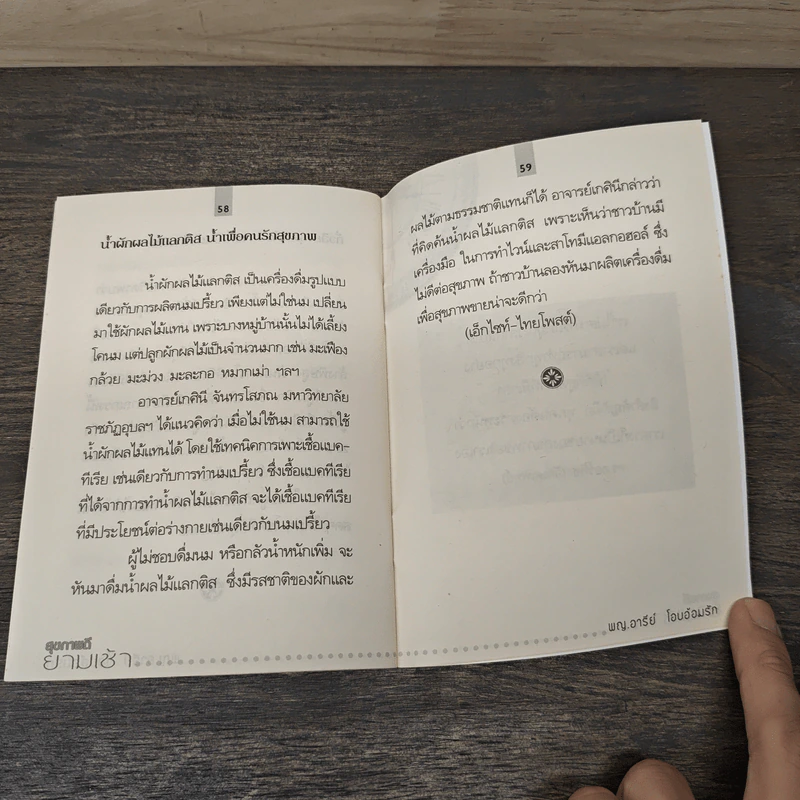 58
น้ำผักผลไม้แลกติส น้ำเพื่อคนรักสุขภาพ
น้ำผักผลไม้แลกติส เป็นเครื่องดื่มรูปแบบ
เดียวกับการผลิตนมเปรี้ยว เพียงแต่ไม่ใช่นม เปลี่ยน
มาใช้ผักผลไม้แทน เพราะบางหมู่บ้านนั้นไม่ได้เลี้ยง
โคนม แต่ปลูกผักผลไม้เป็นจำนวนมาก เช่น มะเฟือง
กล้วย มะม่วง มะละกอ หมากเม่า ฯลฯ
อาจารย์เกศินี จันทรโสภณ มหาวิทยาลัย
ราชภัฏอุบลฯ ได้แนวคิดว่า เมื่อไม่ใช้นม สามารถใช้
น้ำผักผลไม้แทนได้ โดยใช้เทคนิคการเพาะเชื้อแบค-
ทีเรีย เช่นเดียวกับการทำนมเปรี้ยว ซึ่งเชื้อแบคทีเรีย
ที่ได้จากการทำน้ำผลไม้แลกติส จะได้เชื้อแบคทีเรีย
ที่มีประโยชน์ต่อร่างกายเช่นเดียวกับนมเปรี้ยว
ผู้ไม่ชอบดื่มนม หรือกลัวน้ำหนักเพิ่ม จะ
หันมาดื่มน้ำผลไม้แลกติส ซึ่งมีรสชาติของผักและ
สุขภาพดี
ยามเช้า
59
ผลไม้ตามธรรมชาติแทนก็ได้ อาจารย์เกศินีกล่าวว่า
ที่คิดค้นน้ำผลไม้แลกติส เพราะเห็นว่าชาวบ้านมี
เครื่องมือ ในการทำไวน์และสาโทมีแอลกอฮอล์ ซึ่ง
ไม่ดีต่อสุขภาพ ถ้าชาวบ้านลองหันมาผลิตเครื่องดื่ม
เพื่อสุขภาพขายน่าจะดีกว่า
(เอ็กไซท์-ไทยโพสต์)
พญ.อารีย์ โอบอ้อมรัก